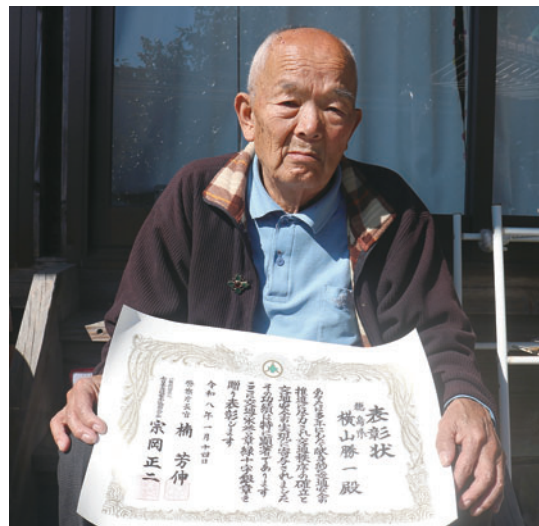 表彰状
徳島県
横山勝一殿
あなたは多年にわたり献身的に交通安全の
推進に尽力され交通秩序の確立と
交通安全の実現に寄与されました
その功績は特に顕著であります
ここに交通栄誉章緑十字銀章を
贈り表彰します
令和八年一月十四日
警察庁長官 楠芳伸
宗岡正二